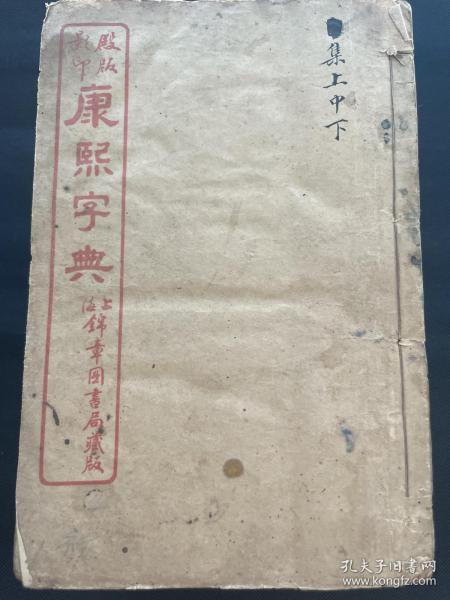 集上中下
殿版
影印
康熙字典
上海
錦章圖書局藏版
孔夫子旧书网
www.kongfz.com